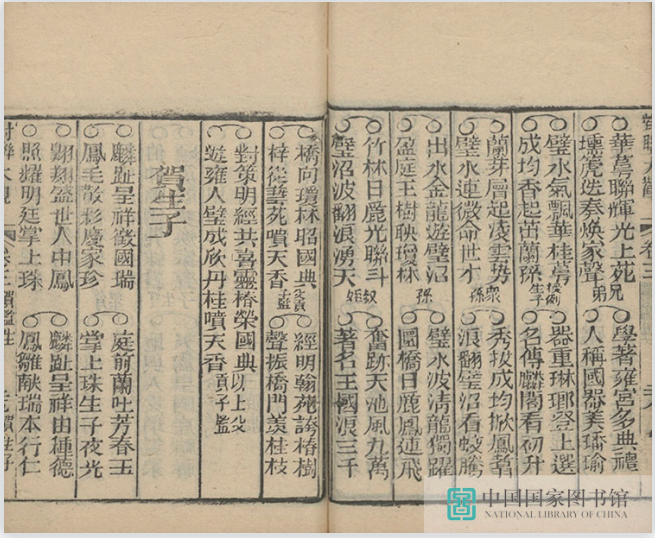 華萼聯輝光上苑 兄 學著雍宮多典禮
壎箎迭奏煥家聲 弟 人稱國器美璠瑜
璧水氣飄華桂 器重琳瑯登上選
成均香起茁蘭孫 生子 名傳麟閣看初升
蘭芽層起凌雲勢 衆 秀拔成均掀鳳翥
璧水連徼命世才 孫 浪翻璧沼看蛟騰
出水金龍遊璧沼 璧水波清龍獨躍
盈庭玉樹映瓊林 孫 圜橋日麗鳳連飛
竹林日麗光聯斗 叔 奮跡天池風九萬
璧沼波翻浪湧天 姪 著名王國浪三千
橋向瓊林昭國典 父貢 經明翰苑誇椿樹
梓從藝苑噴天香 子監 聲振橋門羡桂枝
對策明經共喜靈椿榮國典 以上父
遊雍人璧咸欣丹桂噴天香 貢子監
賀生子
麟趾呈祥徵國瑞 庭前蘭吐芳春玉
鳳毛散彩慶家珍 掌上珠生子夜光
翱翔盛世人中鳳 麟趾呈祥由種德
照耀明廷掌上珠 鳳雛献瑞本行仁
對聯大觀 卷三
中国国家图书馆
NATIONAL LIBRARY OF CHINA